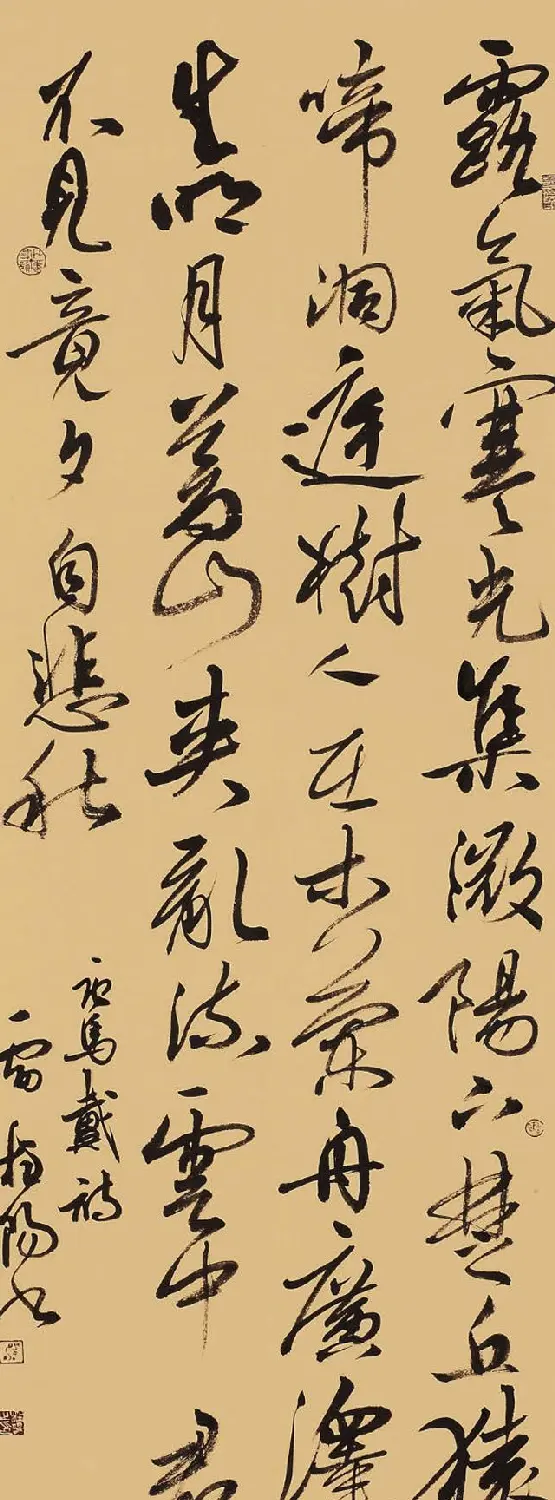 露氣寒光集微陽下楚丘猿
啼洞庭樹人在木蘭舟廣澤
生明月蒼山夾亂流雲中君
不見竟夕自悲秋
馬戴詩
雷陽書